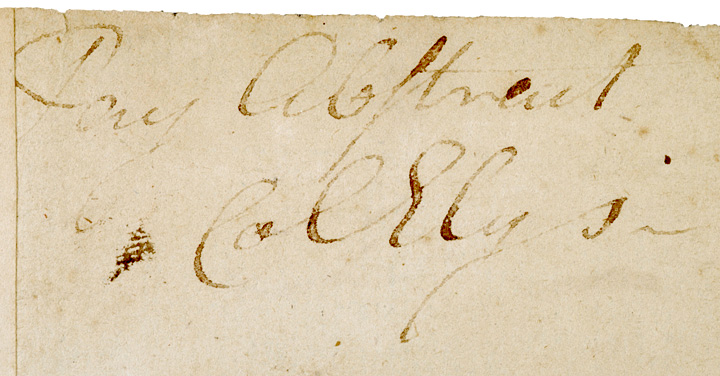 Pay Abstract
Col Ely's